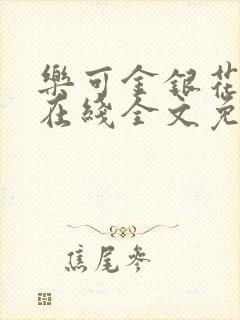 樂可金銀花
在綫全文免
焦尾參